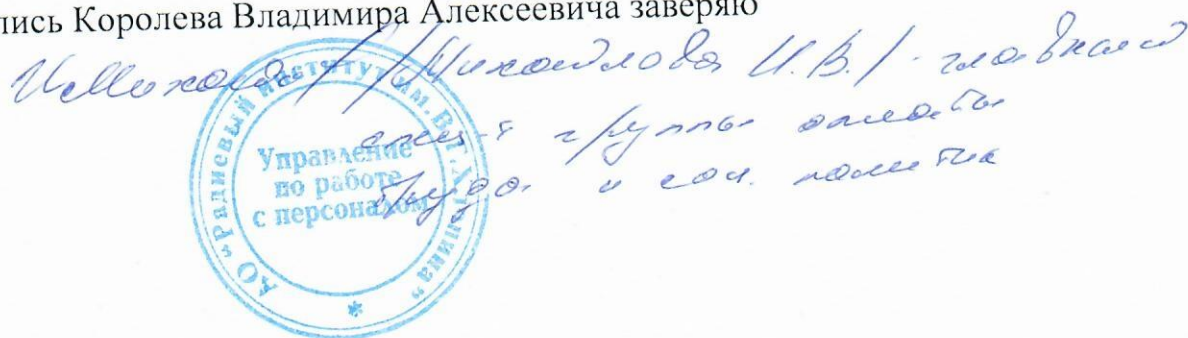 пись Королева Владимира Алексеевича заверяю
/Михайлова И.В./ - главный
спец-т группы оплаты
труда и соц. политики
АО «Радиевый институт им. В.Г. Хлопина»
Управление
по работе
с персоналом